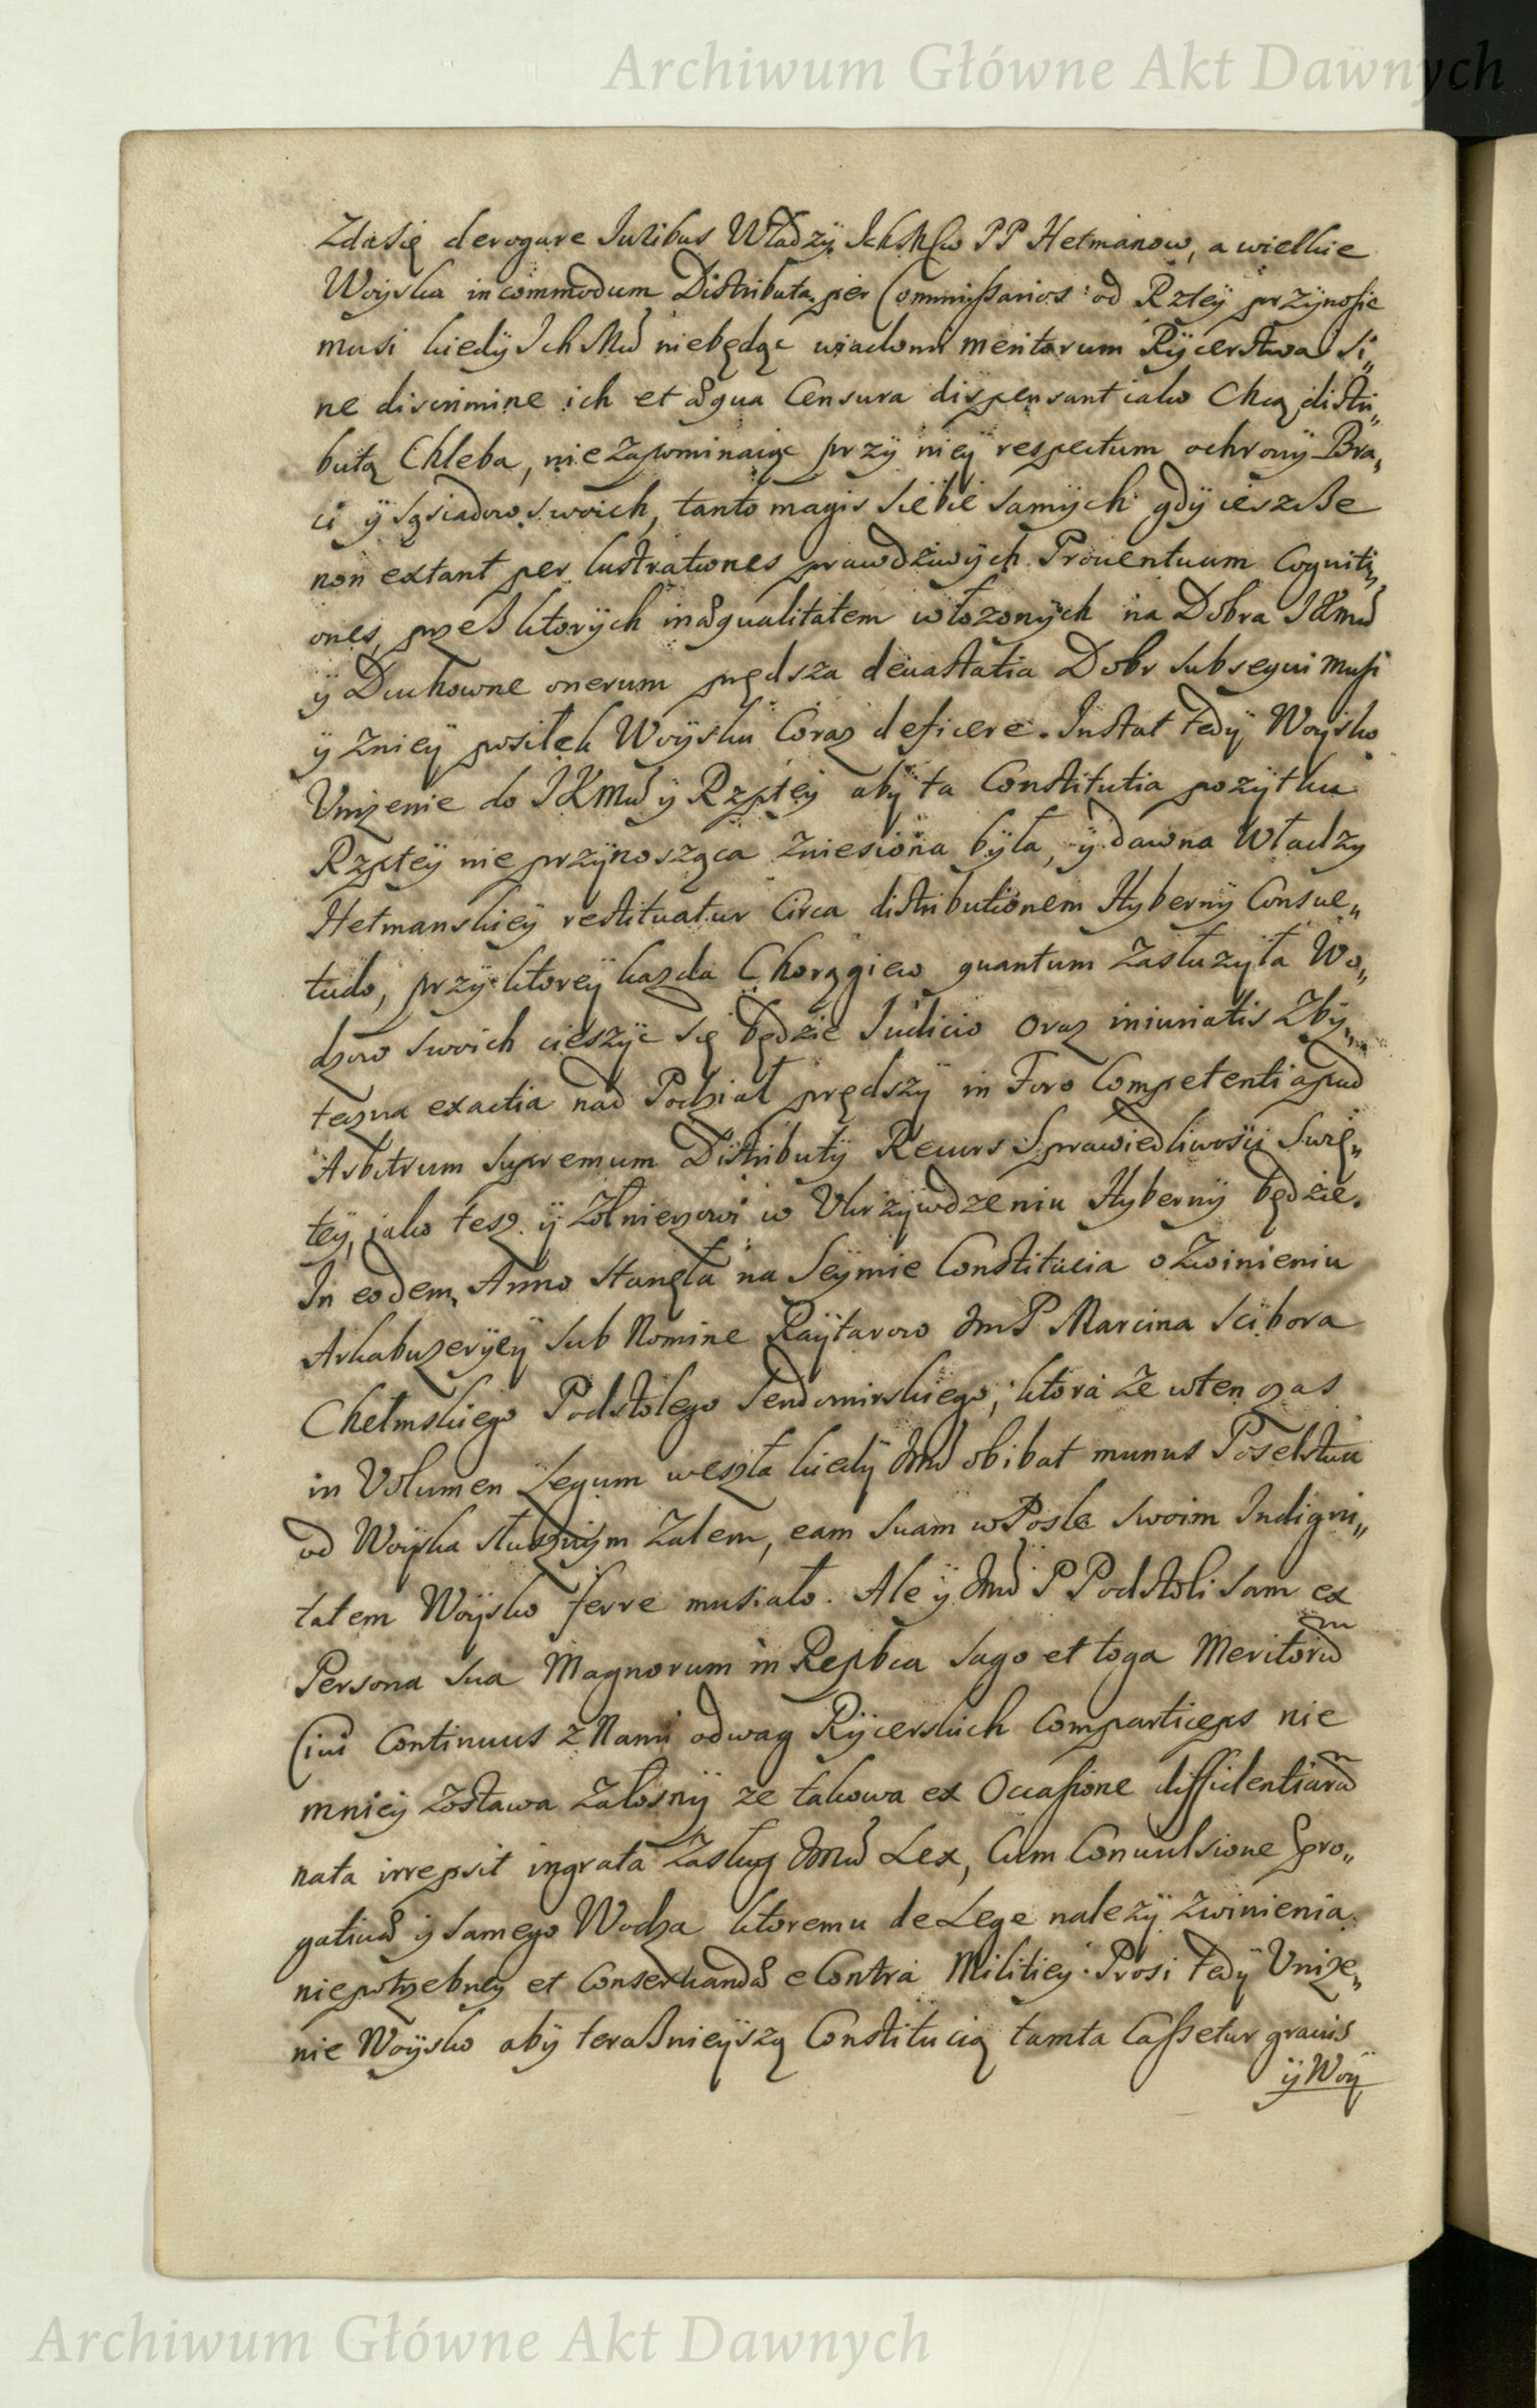 Archiwum Główne Akt Dawnych
Zda się derogare Iuribus Władzÿ IchMśćw PP Hetmanow, a wielkie
Woÿska incommodum Distributa per Commissarios od Rzteÿ przÿnosic
musi kiedÿ Ich Mść niebędąc wiadomi meritorum Rÿcerstwa si„
ne discrimine ich et æqua Censura dispensant iako Chcą distri„
butą Chleba, nie zapominaiąc przÿ nieÿ respectum ochronÿ Bra„
ci ÿ Sąsiadow swoich, tanto magis siebie samÿch gdÿ ieszcze
non extant per lustrationes prawdziwÿch Prouentuum Cogniti„
ones, przeß ktorÿch inæqualitatem włozonÿch na Dobra JKmść
ÿ Duchowne onerum prędsza deuastatia Dobr subsequi musi
ÿ zniey posiłek Woÿsku Coraz deficere. Instat tedÿ Woÿsko
Unizenie do JKMść ÿ Rzpteÿ abÿ ta Constitutia pozÿtku
Rzpteÿ nie przÿnosząca zniesiona bÿła, ÿ dawna Władzy
Hetmanskieÿ restituatur Circa distributionem Hyberny Consue„
tudo, przÿ ktoreÿ kazda Chorągiew quantum zasłuzÿła Wo„
dzow swoich cieszÿc się będzie Iudicio oraz iniuriatis zbÿ„
teczna exactia nad Podział prędszÿ in Foro Competenti apud
Arbitrum supremum Distributÿ Recurs Sprawiedliwosci Swię„
teÿ, jako tesz ÿ zołnierzowi w Ukrzÿwdzeniu Hybernÿ będzie.
In eodem Anno stanęła na Seÿmie Constitucia o zwinieniu
Arkabuzerÿeÿ sub Nomine Raÿtarow JmP Marcina Scibora
Chełmskiego Podstolego Sendomirskiego, ktora ze wten czas
in Volumen Legum weszła kiedÿ Jmść obibat munus Poselstwa
od Woÿska słusznÿm zalem, eam suam w Posle swoim Indigni„
tatem Woÿsko ferre musiało. Ale ÿ Jmść P Podstoli sam ex
Persona sua Magnorum in Repbca sago et toga Meritorum
Ciui Continuus z Nami odwag Rÿcerskich Comparticeps nie
mnieÿ zostawa załosnÿ ze takowa ex Occasione diffidentiarum
nata irrepsit ingrata zasług Jmść Lex, Cum Conuulsione Præro„
gatiuæ ÿ samego Wodza ktoremu de Lege nalezÿ zwinienia
niepotrzebneÿ et Conseruandæ e Contra Militieÿ. Prosi tedÿ Unize„
nie Woÿsko abÿ teraßnieÿszą Constitucią tamta Cassetur grauis
ÿ Woÿ
Archiwum Główne Akt Dawnych